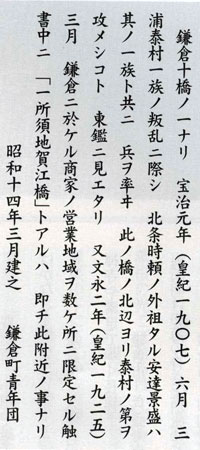 鎌倉十橋ノ一ナリ 宝治元年(皇紀一九〇七)六月 三
浦泰村一族ノ叛乱ニ際シ 北条時頼ノ外祖タル安達景盛ハ
其ノ一族ト共ニ 兵ヲ率ヰ 此ノ橋ノ北辺ヨリ泰村ノ第ヲ
攻メシコト 東鑑ニ見エタリ 又文永二年(皇紀一九二五)
三月 鎌倉ニ於ケル商家ノ営業地域ヲ数ケ所ニ限定セル触
書中ニ 「一所須地賀江橋」トアルハ 即チ此附近ノ事ナリ
昭和十四年三月建之 鎌倉町青年団